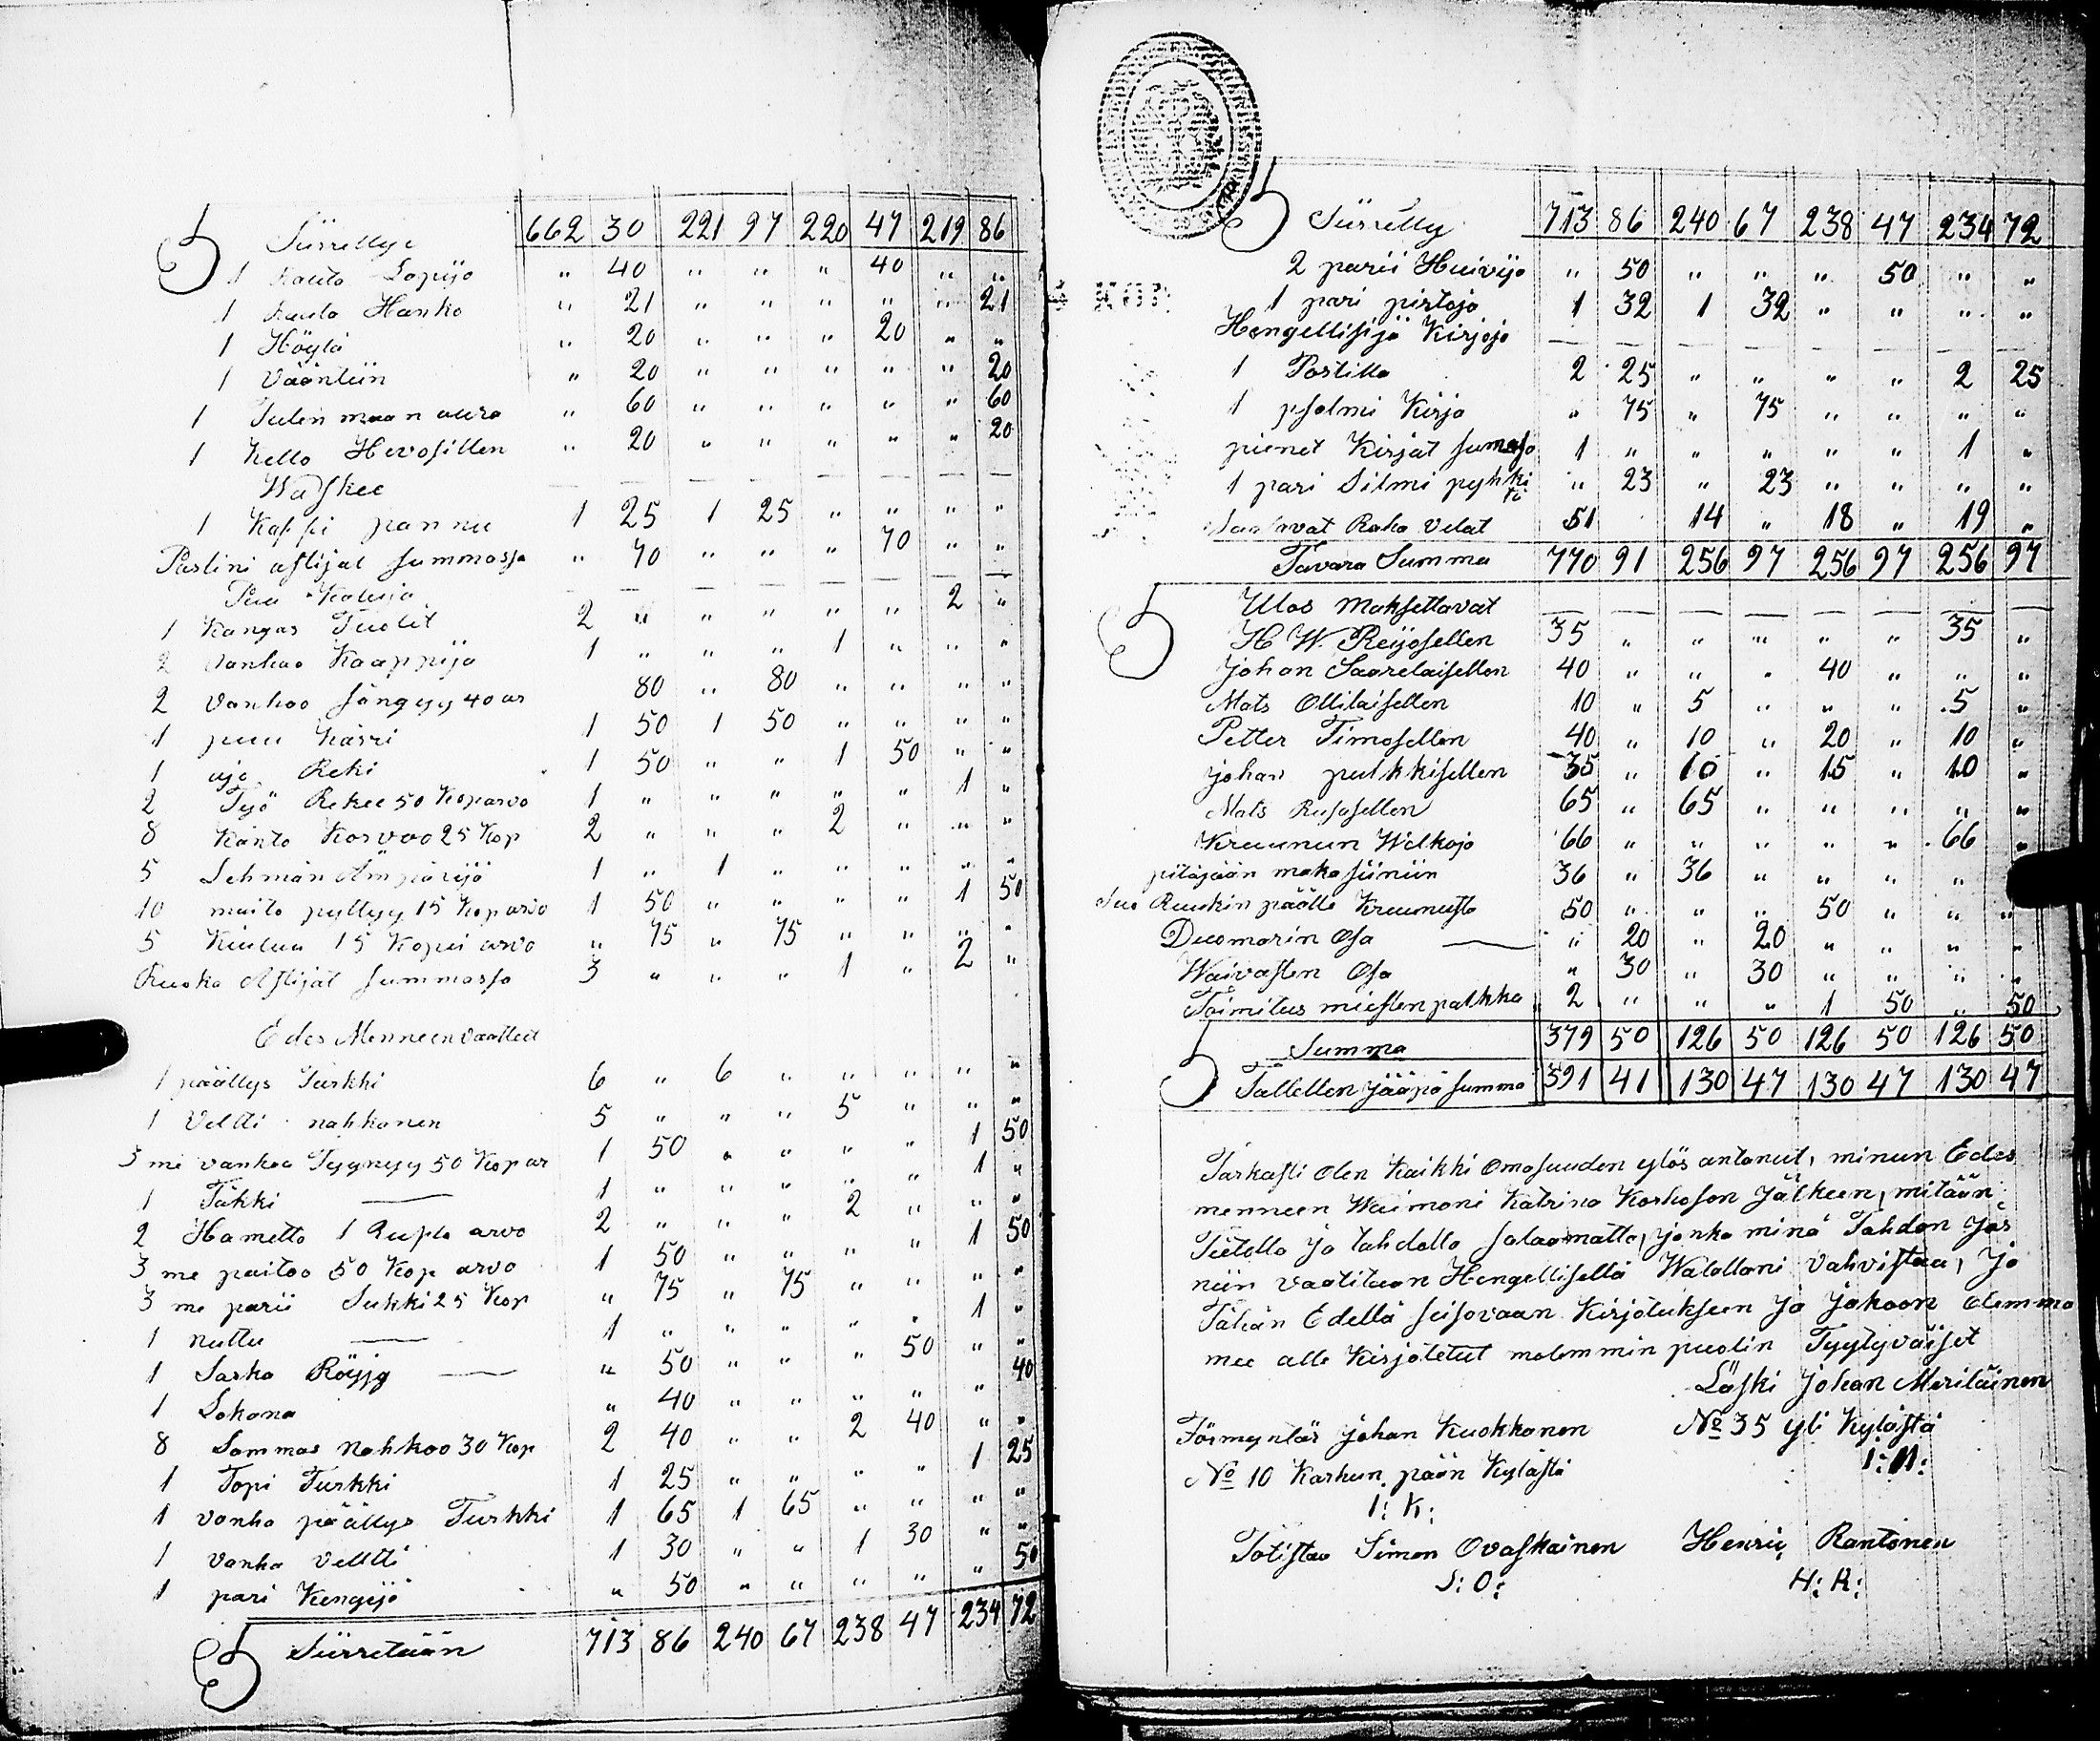 Siirrettye 662 30 221 97 220 47 219 86
1 Rauta Lapijo " 40 " " " 40 " "
1 Rauta Hanko " 21 " " " " " 21
1 Höylä " 20 " " " 20 " "
1 Vääntiin " 20 " " " " " 20
1 Tulen maan aura " 60 " " " " " 60
1 Kello Hevosillen " 20 " " " " " 20
Waskee — — — — — — — —
1 Kaffi pannu 1 25 1 25 " " " "
Paslini astijat summassa " 70 " " " 70 " "
Puu Kaluja — — — — — — — —
1 Kangas Tuolit 2 " " " " " 2 "
2 vanhaa Kaappija 1 " " " 1 " " "
2 vanhaa sängyy 40 ar 80 " 80 " " " "
1 puu Kärri 1 50 1 50 " " " "
1 ajo Reki 1 50 " " 1 50 " "
2 Työ Rekee 50 Kop arvo 1 " " " " " 1 "
8 Kanto Korvoo 25 Kop 2 " " " 2 " " "
5 Lehmän Ämpärijä 1 " 1 " " " " "
10 maito pyttyy 15 Kop arvo 1 50 " " " " 1 50
5 Kiuluu 15 Kopei arvo " 75 " 75 " " " "
Ruoka Astijat summassa 3 " " " 1 " 2 "
Edes Menneen vaatteit
1 päällys Turkki 6 " 6 " " " " "
1 Veltti nahkanen 5 " " " 5 " " "
3 me vanhaa Tyynyy 50 Kop ar 1 50 " " " " 1 50
1 Täkki — 1 " " " " " 1 "
2 Hametta 1 Rupla arvo 2 " " " 2 " " "
3 me paitoo 50 Kop arvo 1 50 " " " " 1 50
3 me parii Sukki 25 Kop " 75 " 75 " " " "
1 nuttu — 1 " " " " " 1 "
1 Sarka Röyjy — " 50 " " " 50 " "
1 Lokana " 40 " " " " " 40
8 Lammas Nahkoo 30 Kop 2 40 " " 2 40 " "
1 Topi Turkki 1 25 " " " " 1 25
1 vanha päällys Turkki 1 65 1 65 " " " "
1 vanha veltti 1 30 " " 1 30 " "
1 pari Kengijä " 50 " " " " " 50
Siirretään 713 86 240 67 238 47 234 72
Siirretty 713 86 240 67 238 47 234 72
2 parii Huivijo " 50 " " " 50 " "
1 pari pirtoja 1 32 1 32 " " " "
Hengellisijä Kirjojo — — — — — — — —
1 Postilla 2 25 " " " " 2 25
1 psalmi Kirja " 75 " 75 " " " "
pienet Kirjat sumasa 1 " " " " " 1 "
1 pari Silmi pyhkitä " 23 " 23 " " " "
Saatavat Raha velat 51 14 " 18 " 19 "
Tavara Summa 770 91 256 97 256 97 256 97
Ulos maksettavat — — — — — — — —
H W. Reijosellen 35 " " " " " 35 "
Johan Saarelaisellen 40 " " " 40 " " "
Mats Ollilaisellen 10 " 5 " " " 5 "
Petter Timosellen 40 " 10 " 20 " 10 "
Johan pulkkisellen 35 " 10 " 15 " 10 "
Mats Rusasellen 65 " 65 " " " " "
Kruunun Welkoja 66 " " " " " 66 "
pitäjään makasiiniin 36 " 36 " " " "
Suo Ruukin päälle Kruunulle 50 " " " 50 " " "
Duomarin Osa — " 20 " 20 " " " "
Waivasten Osa " 30 " 30 " " " "
Toimitus miesten palkka 2 " " " 1 50 " 50
Summa 379 50 126 50 126 50 126 50
Tallellen jääpä summa 391 41 130 47 130 47 130 47
Tarkasti olen kaikki omasuuden ylös antanut, minun Edes
menneen Waimoni Katrina Korhoson jälkeen, mitään
Tietello ja tahdollo salaamatta, jonka minä Tahdon jos
niin vaatitaan Hengellisellä Walallani vahvistaa, Ja
Tähän Edellä seisovaan Kirjotukseen ja jakoon olemma
mee alle Kirjotetut molemmin puolin Tyytyväiset
Läski Johan Meriläinen
Förmyntär Johan Kuokkanen No 35 yli Kylästä
I: M:
No 10 Karhun pään Kylästä
I: K:
Totistaa Simon Ovaskainen Henrik Rantonen
S: O: H: R: